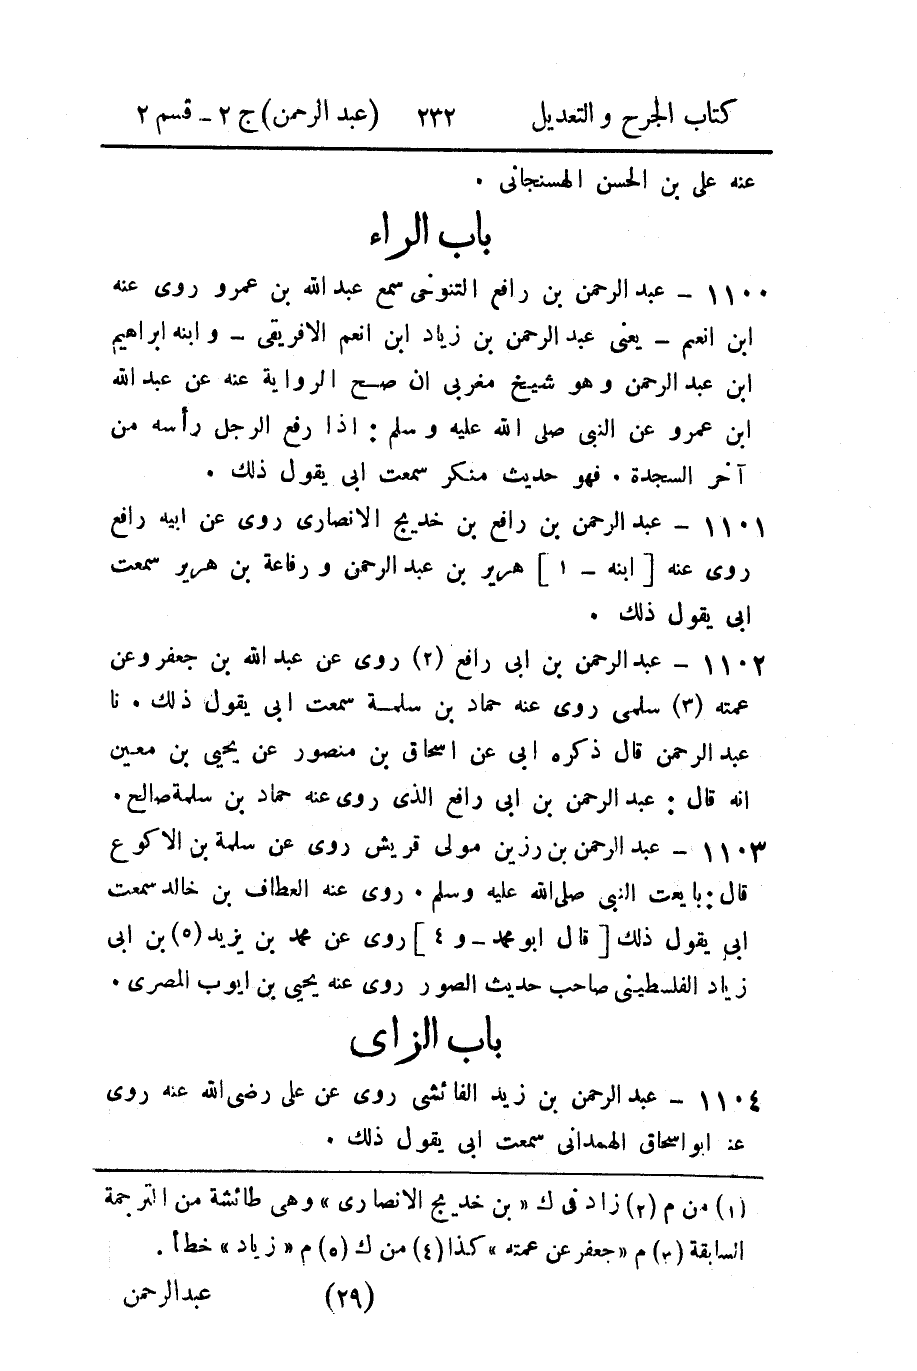 كتاب الجرح و التعديل ٢٣٢ (عبد الرحمن) ج ٢ - قسم ٢
عنه على بن الحسن الهسنجانى .
باب الراء
١١٠٠ - عبد الرحمن بن رافع التنوخى سمع عبد الله بن عمرو روى عنه
ابن انعم - يعنى عبد الرحمن بن زياد ابن انعم الافريقى - و ابنه ابراهيم
ابن عبد الرحمن و هو شيخ مغربى ان صح الرواية عنه عن عبد الله
ابن عمرو عن النبى صلى الله عليه و سلم : اذا رفع الرجل رأسه من
آخر السجدة . فهو حديث منكر سمعت ابى يقول ذلك .
١١٠١ - عبد الرحمن بن رافع بن خديج الانصارى روى عن ابيه رافع
روى عنه [ ابنه - ١ ] هرير بن عبد الرحمن و رفاعة بن هرير سمعت
ابى يقول ذلك .
١١٠٢ - عبد الرحمن بن ابى رافع (٢) روى عن عبد الله بن جعفر وعن
عمته (٣) سلمى روى عنه حماد بن سلمة سمعت ابى يقول ذلك . نا
عبد الرحمن قال ذكره ابى عن اسحاق بن منصور عن يحيى بن معين
انه قال : عبد الرحمن بن ابى رافع الذى روى عنه حماد بن سلمة صالح .
١١٠٣ - عبد الرحمن بن رزين مولى قريش روى عن سلمة بن الاكوع
قال : بايعت النبى صلى الله عليه وسلم . روى عنه العطاف بن خالد سمعت
ابى يقول ذلك [ قال ابو محمد - و ٤ ] روى عن محمد بن يزيد (٥) بن ابى
زياد الفلسطينى صاحب حديث الصور روى عنه يحيى بن ايوب المصرى .
باب الزاى
١١٠٤ - عبد الرحمن بن زيد الفائشى روى عن على رضى الله عنه روى
عنه ابو اسحاق الهمدانى سمعت ابى يقول ذلك .
(١) من م (٢) زاد فى ك « بن خديج الانصارى » وهى طائشة من الترجمة
السابقة (٣) م « جعفر عن عمته » كذا (٤) من ك (٥) م « زياد » خطأ .
(٢٩) عبد الرحمن